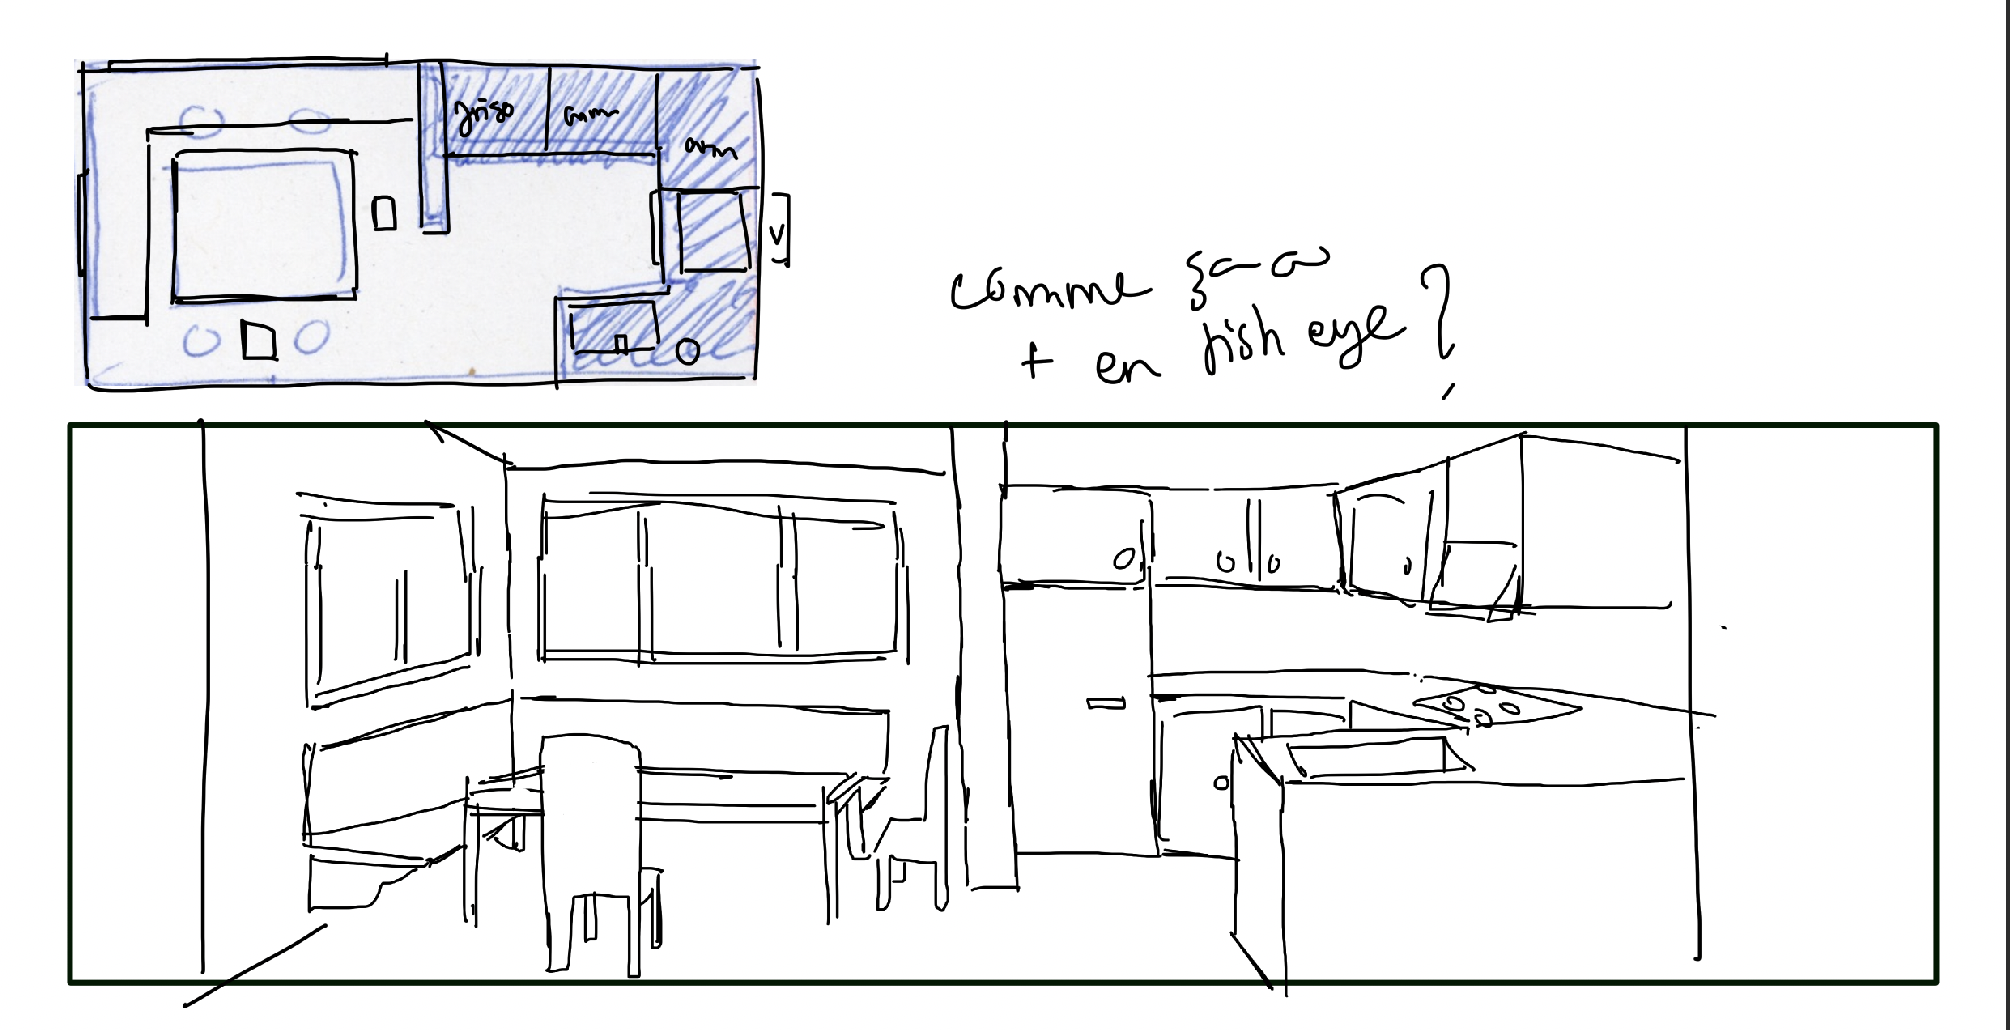 frigo
arm
arm
V
comme ça
+ en fish eye ?